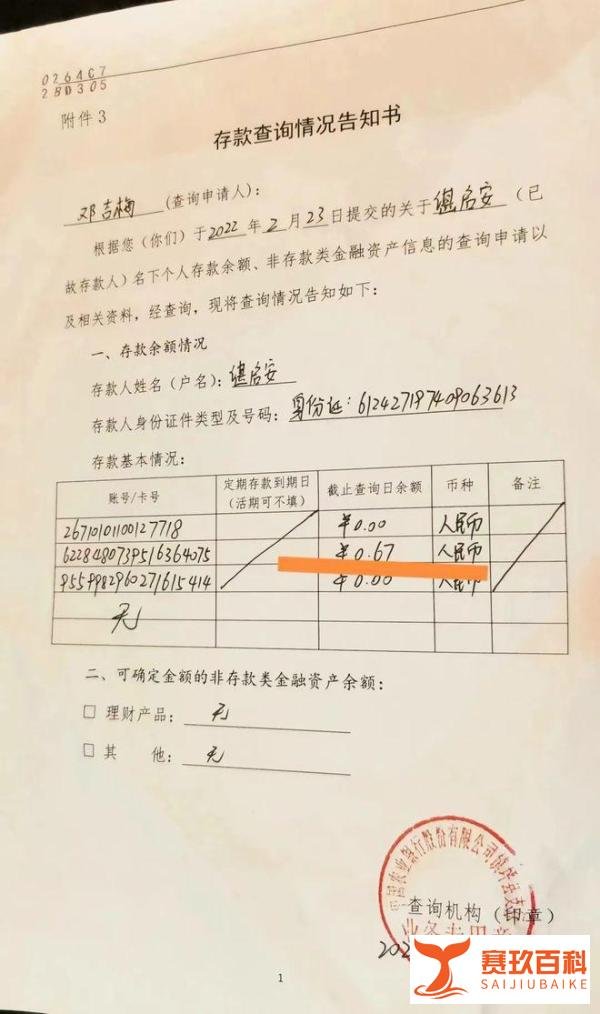 0264C7
2BD305
附件3
存款查询情况告知书
邓吉梅 (查询申请人)：
根据您（你们）于2022年2月23日提交的关于谌启安（已
故存款人）名下个人存款余额、非存款类金融资产信息的查询申请以
及相关资料，经查询，现将查询情况告知如下：
一、存款余额情况
存款人姓名（户名）：谌启安
存款人身份证件类型及号码：身份证：612427197409063613
存款基本情况：
账号/卡号 定期存款到期日（活期可不填） 截止查询日余额 币种 备注
26710101100127718 ￥0.00 人民币
6228480739516364075 ￥0.67 人民币
9559982960271615414 ￥0.00 人民币
无
二、可确定金额的非存款类金融资产余额：
□ 理财产品：无
□ 其 他：无
中国农业银行股份有限公司镇坪县支行
查询机构（印章）
业务专用章
202
赛玖百科
SAIJIUBAIKE
1